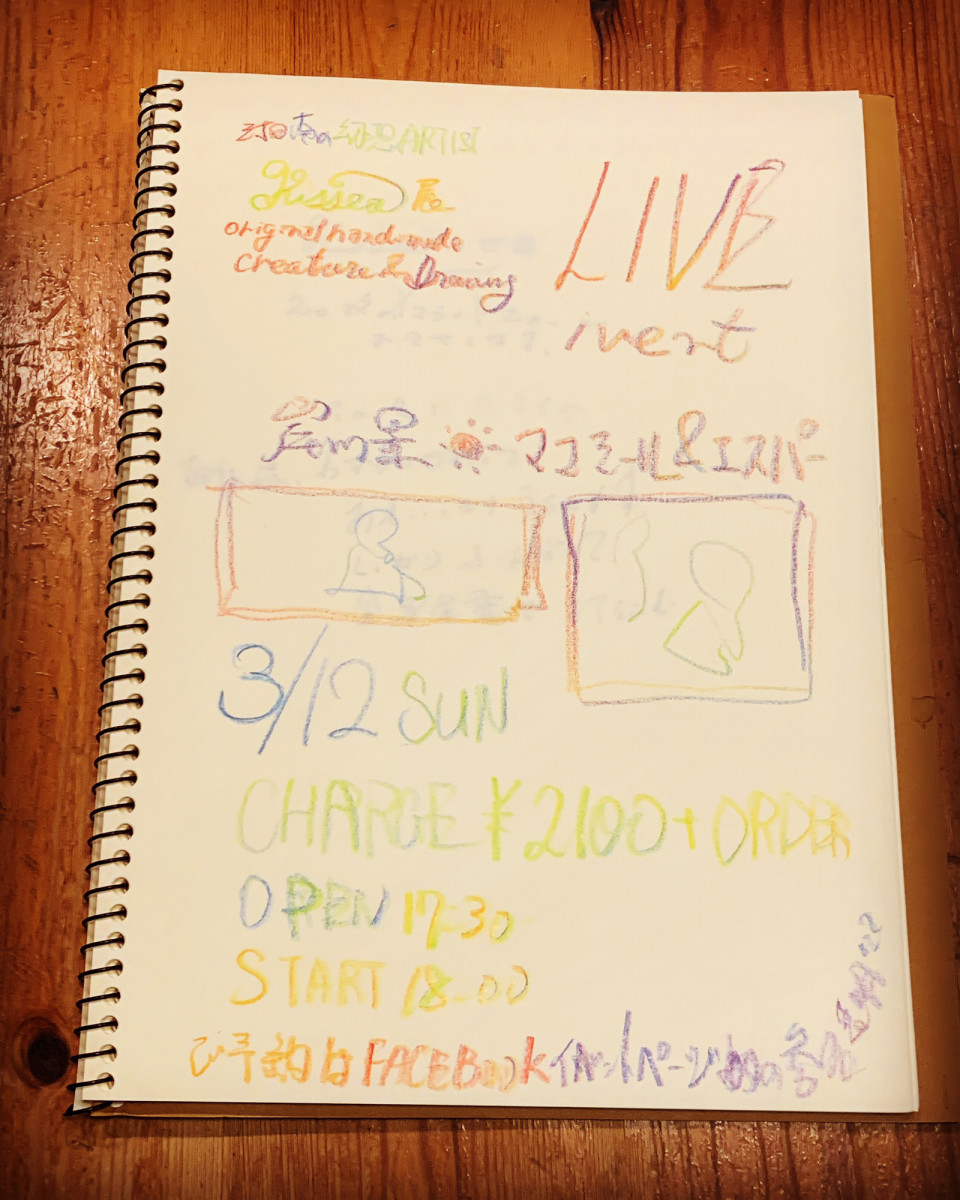 湘南の幻想ARTIST
gussea展
original handmade
creature & Drawing
LIVE
ivent
岸川景 マコミール&エスパー
3/12 SUN
CHARGE ¥2100+ORDER
OPEN 17:30
START 18:00
ご予約は FACEBOOK イベントページ内の参加